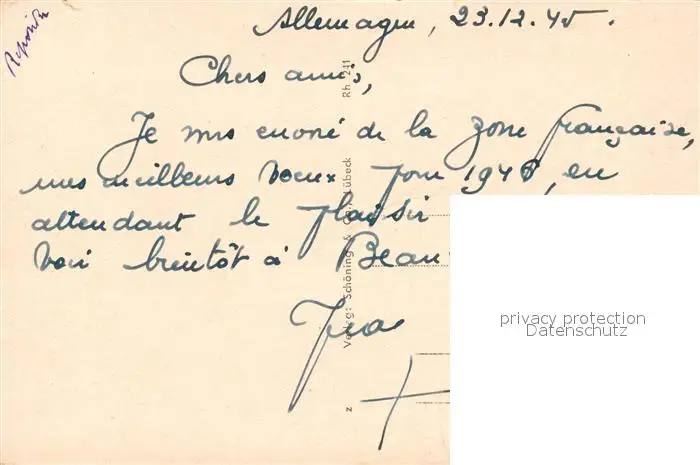 Répondu
Allemagne, 23.12.45.
Chers amis,
Je vous envoie de la zone française,
mes meilleurs voeux pour 1946, en
attendant le plaisir
voir bientôt à Beau
Rh 241
Verlag: Schöning & Co., Lübeck
z
privacy protection
Datenschutz